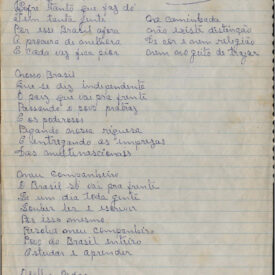 Sofre tanto que faz dó
Tem tanta gente
Por esse Brasil afora
A procura de melhora
E cada vez fica pior
Na caminhada
não existe distinção
De cor e nem religião
nem no jeito de trajar
nosso Brasil
Que se diz independente
É país que vai pra frente
o povo
E os poderosos
Pegando nossa riqueza
E entregando as empresas
Das multinacionais
meu Companheiro
O Brasil só vai pra frente
Se um dia toda gente
Souber ler e escrever
Por isso mesmo
Resolva meu Companheiro
Povo do Brasil inteiro
Estudar e aprender